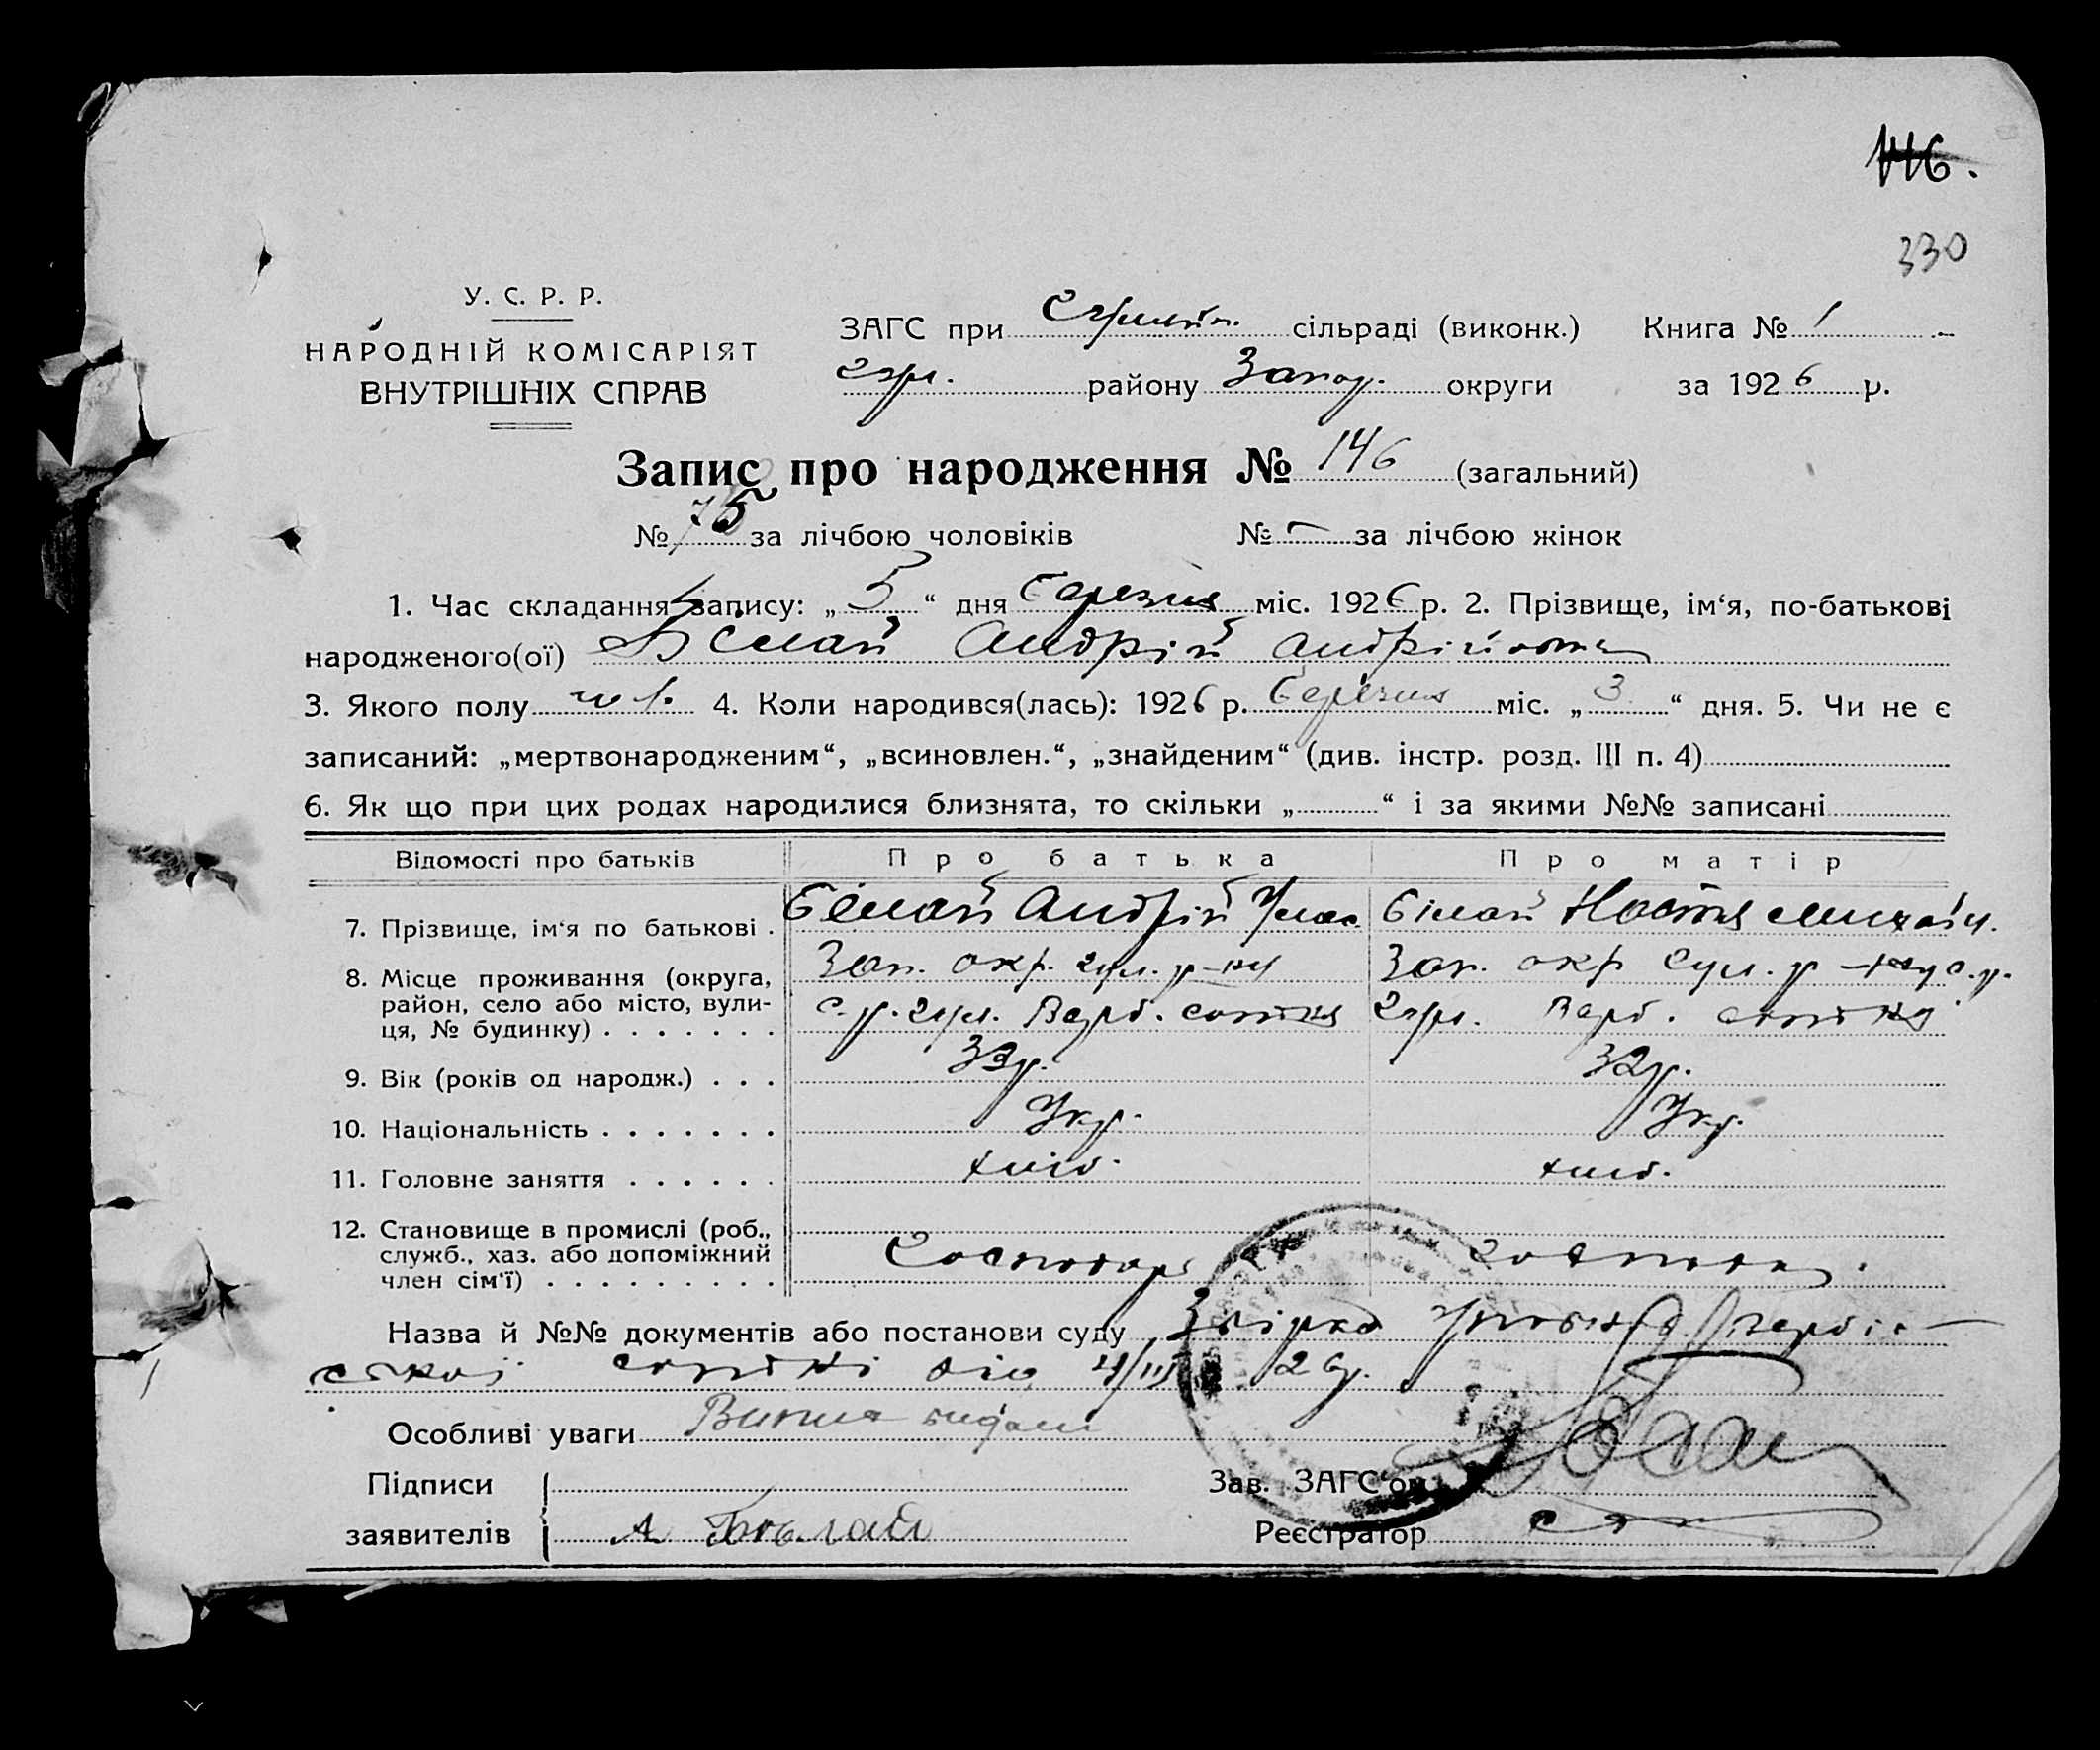 146.
330
У. С. Р. Р.
НАРОДНІЙ КОМІСАРІЯТ
ВНУТРІШНІХ СПРАВ
ЗАГС при сільраді (виконк.) Книга № 1
району Запор. округи за 1926 р.
Запис про народження № 146 (загальний)
№ 75 за лічбою чоловіків № — за лічбою жінок
1. Час складання запису: „5“ дня березня міс. 1926 р. 2. Прізвище, ім‘я, по-батькові
народженого(ої) Білай Андрій Андрійович
3. Якого полу чол. 4. Коли народився(лась): 1926 р. березня міс. „3“ дня. 5. Чи не є
записаний: „мертвонародженим“, „всиновлен.“, „знайденим“ (див. інстр. розд. III п. 4)
6. Як що при цих родах народилися близнята, то скільки „ “ і за якими №№ записані
Відомості про батьків Про батька Про матір
7. Прізвище, ім‘я по батькові . Білай Андрій Білай Настя Михайл.
8. Місце проживання (округа, Зап. окр. Зап. окр
район, село або місто, вули-
ця, № будинку) . . . . . . . Верб. сотня Верб. сотня
9. Вік (років од народж.) . . . 33р. 32р.
10. Національність . . . . . . . Укр. Укр.
11. Головне заняття . . . . . . хліб. хліб.
12. Становище в промислі (роб.,
служб., хаз. або допоміжний
член сім‘ї) . . . . . . . . . Господар
Назва й №№ документів або постанови суду
ської сотні від 4/III 26р.
Особливі уваги видана
Підписи Зав. ЗАГС‘ом
заявителів А Бѣлай Реєстратор